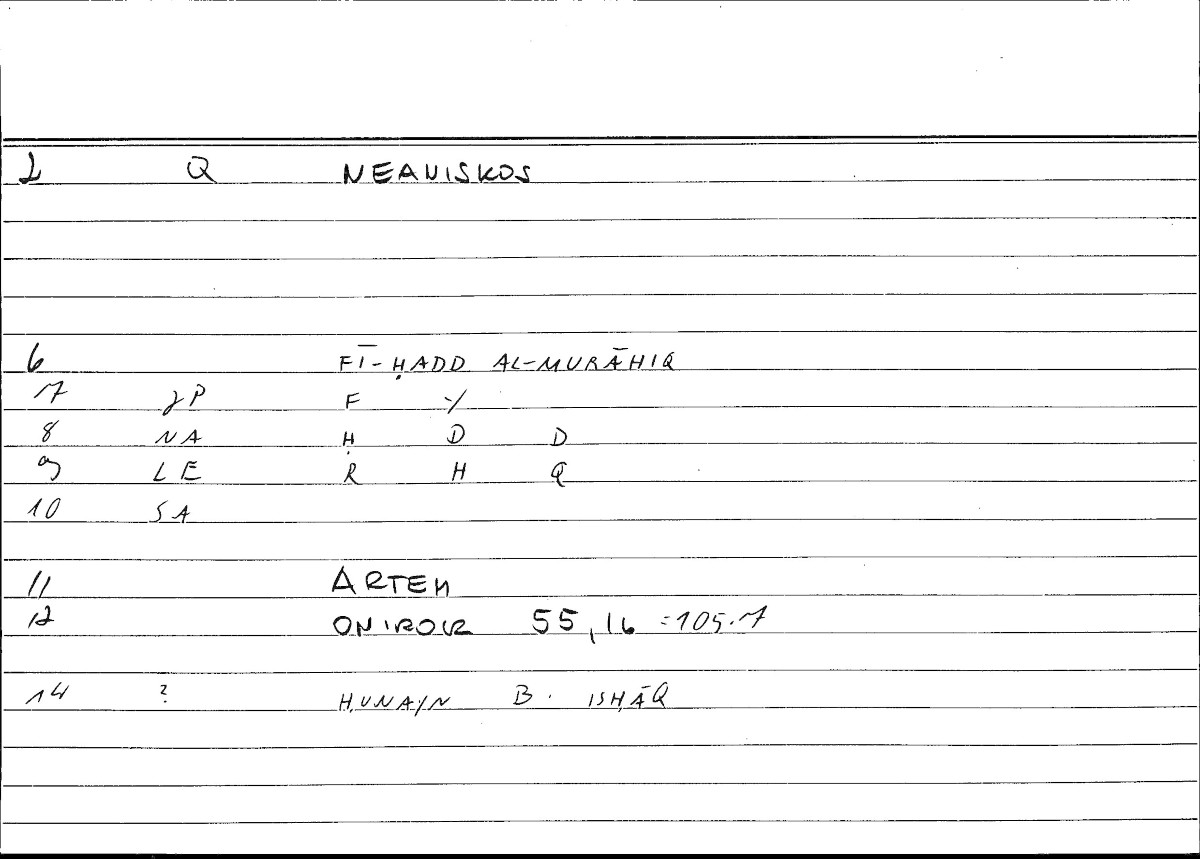 1 Q NEANISKOS
6 FĪ-ḤADD AL-MURĀHIQ
7 JP F Y
8 NA Ḥ D D
9 LE R H Q
10 SA
11 ARTEM
12 ONIROCR 55,16 =105.7
14 ? ḤUNAYN B. ISḤĀQ